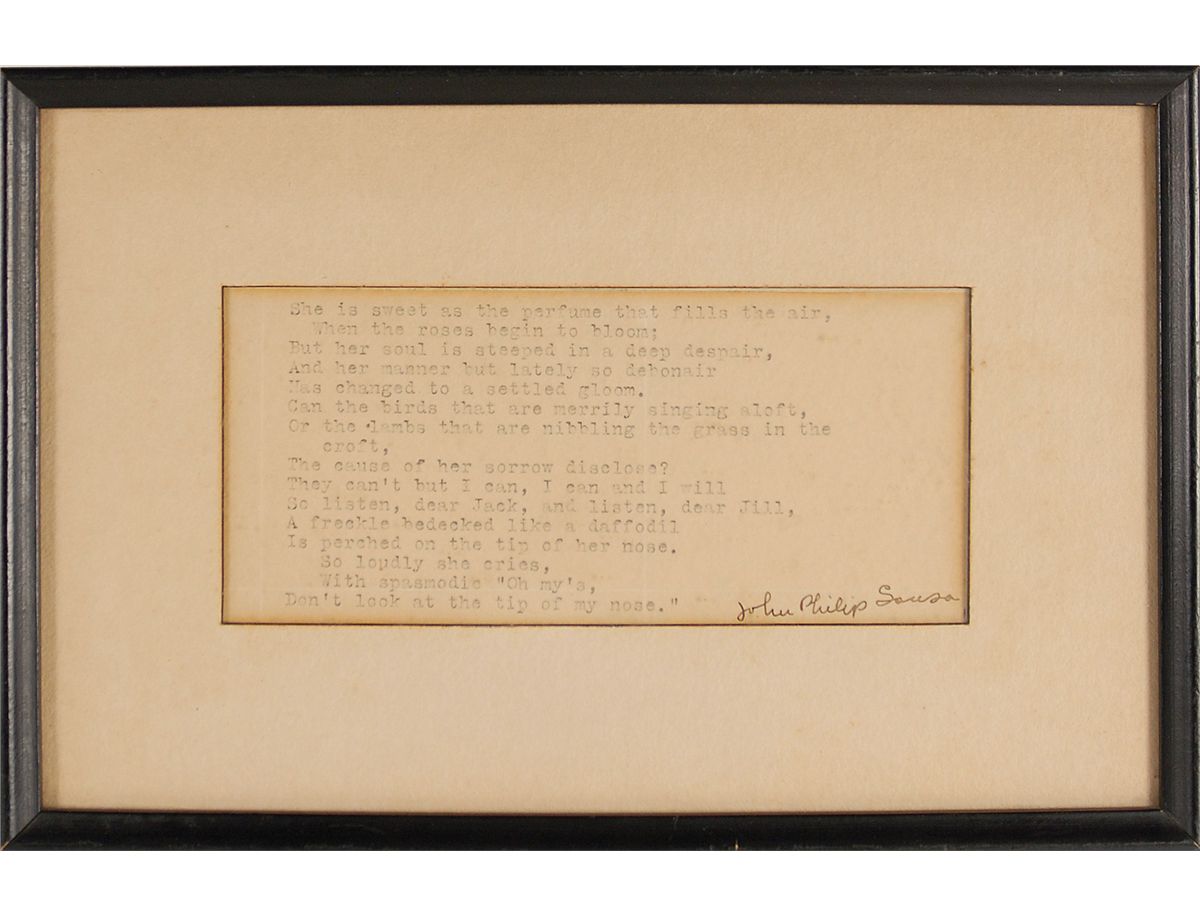 She is sweet as the perfume that fills the air,
When the roses begin to bloom;
But her soul is steeped in a deep despair,
And her manner but lately so debonair
Has changed to a settled gloom.
Can the birds that are merrily singing aloft,
Or the lambs that are nibbling the grass in the
croft,
The cause of her sorrow disclose?
They can't but I can, I can and I will
So listen, dear Jack, and listen, dear Jill,
A freckle bedecked like a daffodil
Is perched on the tip of her nose.
So loudly she cries,
With spasmodic "Oh my's,
Don't look at the tip of my nose."
John Philip Sousa